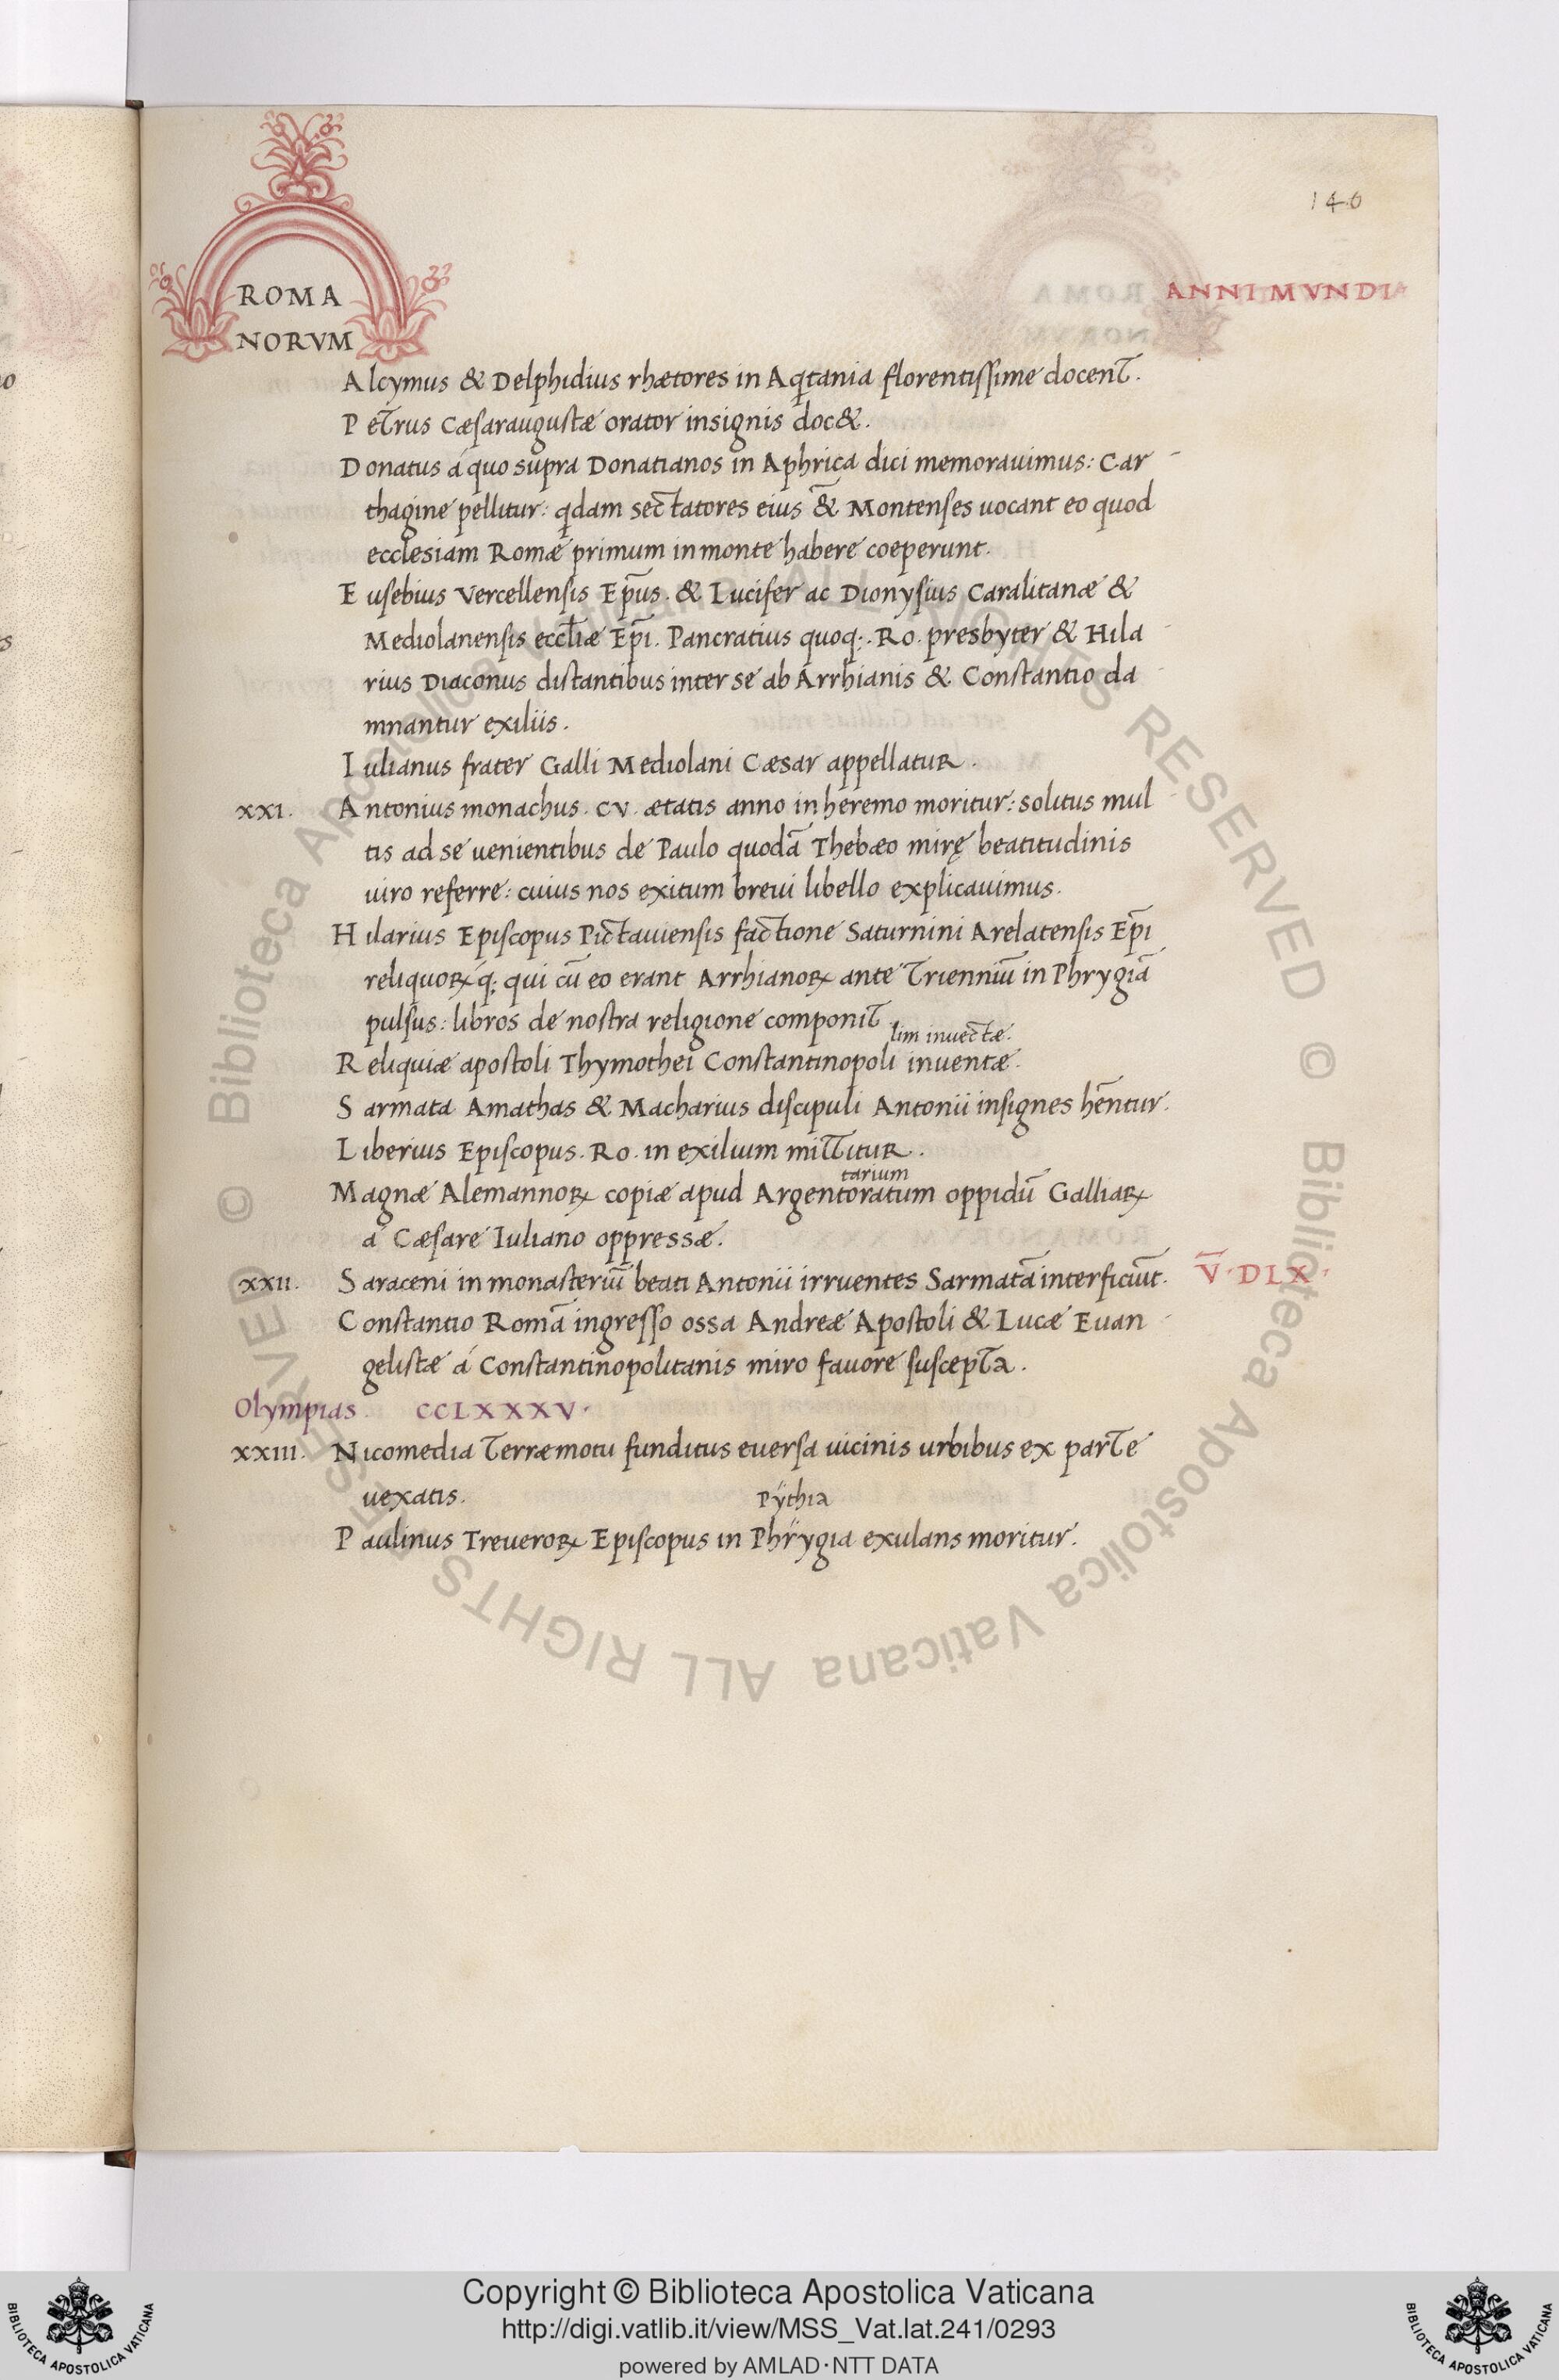 146
ROMA
NORVM
ANNI MVNDI
Alcymus & Delphidius rhætores in Aq̣tania florentissime docent.
Petrus Cæsaraugustæ orator insignis doc&.
Donatus á quo supra Donatianos in Aphrica dici memorauimus: Car
thagine pellitur: qdam sectatores eius & Montenses uocant eo quod
ecclesiam Romæ primum in monte habere coeperunt.
Eusebius Vercellensis Ep̄us. & Lucifer ac Dionysius Caralitanæ &
Mediolanensis eccl̄iæ Ep̄i. Pancratius quoq;. Ro. presbyter & Hila
rius Diaconus distantibus inter se ab Arrhianis & Constantio da
mnantur exiliis.
Iulianus frater Galli Mediolani Cæsar appellatur.
XXI. Antonius monachus. CV. ætatis anno in heremo moritur: solitus mul
tis ad se uenientibus de Paulo quodā Thebæo mirę beatitudinis
uiro referre: cuius nos exitum breui libello explicauimus.
Hilarius Episcopus Pictauiensis factione Saturnini Arelatensis Ep̄i
reliquoꝝ q́; qui cū eo erant Arrhianoꝝ ante Trienniū in Phrygiā
pulsus: libros de nostra religione componit
lim inuectæ.
Reliquiæ apostoli Thymothei Constantinopoli inuentæ.
Sarmata Amathas & Macharius discipuli Antonii insignes hēntur.
Liberius Episcopus. Ro. in exilium mittitur.
tarium
Magnæ Alemannoꝝ copiæ apud Argentoratum oppidū Galliaꝝ
á Cæsare Iuliano oppressæ.
XXII. Saraceni in monasteriū beati Antonii irruentes Sarmatā interficiūt. V̄·DLX·
Constantio Romā ingresso ossa Andreæ Apostoli & Lucæ Euan
gelistæ á Constantinopolitanis miro fauore suscepta.
Olympias. CCLXXXV.
XXIII. Nicomedia Terræmotu funditus euersa uicinis urbibus ex parte
uexatis.
Pÿthia
Paulinus Treueroꝝ Episcopus in Phrÿgia exulans moritur.
© Biblioteca Apostolica Vaticana ALL RIGHTS RESERVED © Biblioteca Apostolica Vaticana ALL RIGHTS RESERVED
Copyright © Biblioteca Apostolica Vaticana
http://digi.vatlib.it/view/MSS_Vat.lat.241/0293
powered by AMLAD·NTT DATA
BIBLIOTECA APOSTOLICA VATICANA
BIBLIOTECA APOSTOLICA VATICANA